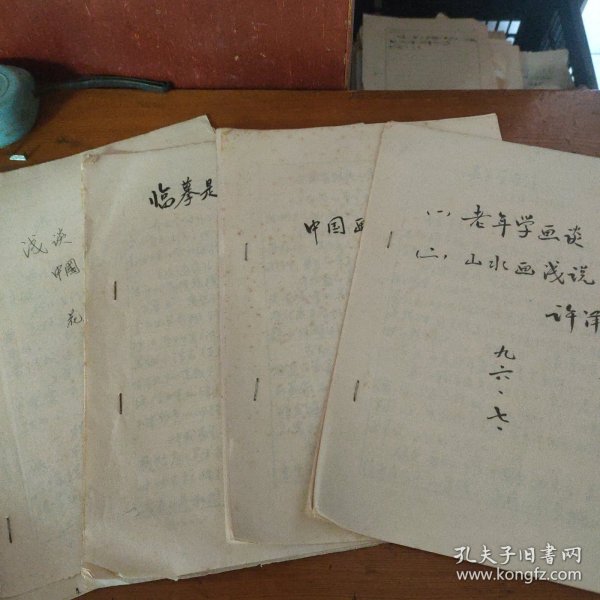 浅谈
中国
花
临摹是
中国画
(一)老年学画谈
(二)山水画浅说
许泽
九六.七.
孔夫子旧书网
www.kongfz.com